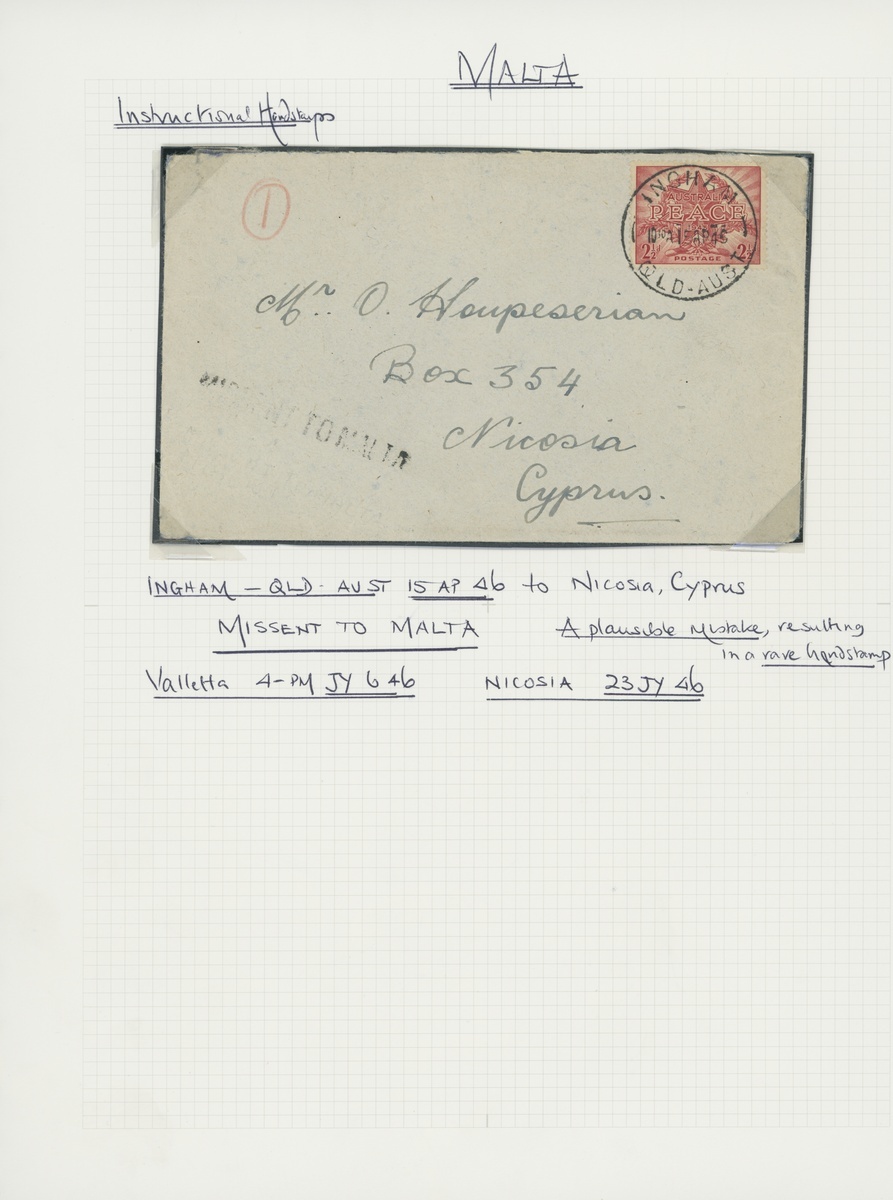 MALTA
Instructional Handstamps
1
INGHAM
AUSTRALIA
PEACE
15 AP 46
2½ 2½
POSTAGE
QLD-AUST
Mr. O. Houpeserian
Box 354
MISSENT TO MALTA
Nicosia
Cyprus.
INGHAM — QLD - AUST 15 AP 46 to Nicosia, Cyprus
MISSENT TO MALTA A plausible mistake, resulting
in a rare handstamp
Valletta 4-PM JY 6 46 NICOSIA 23 JY 46